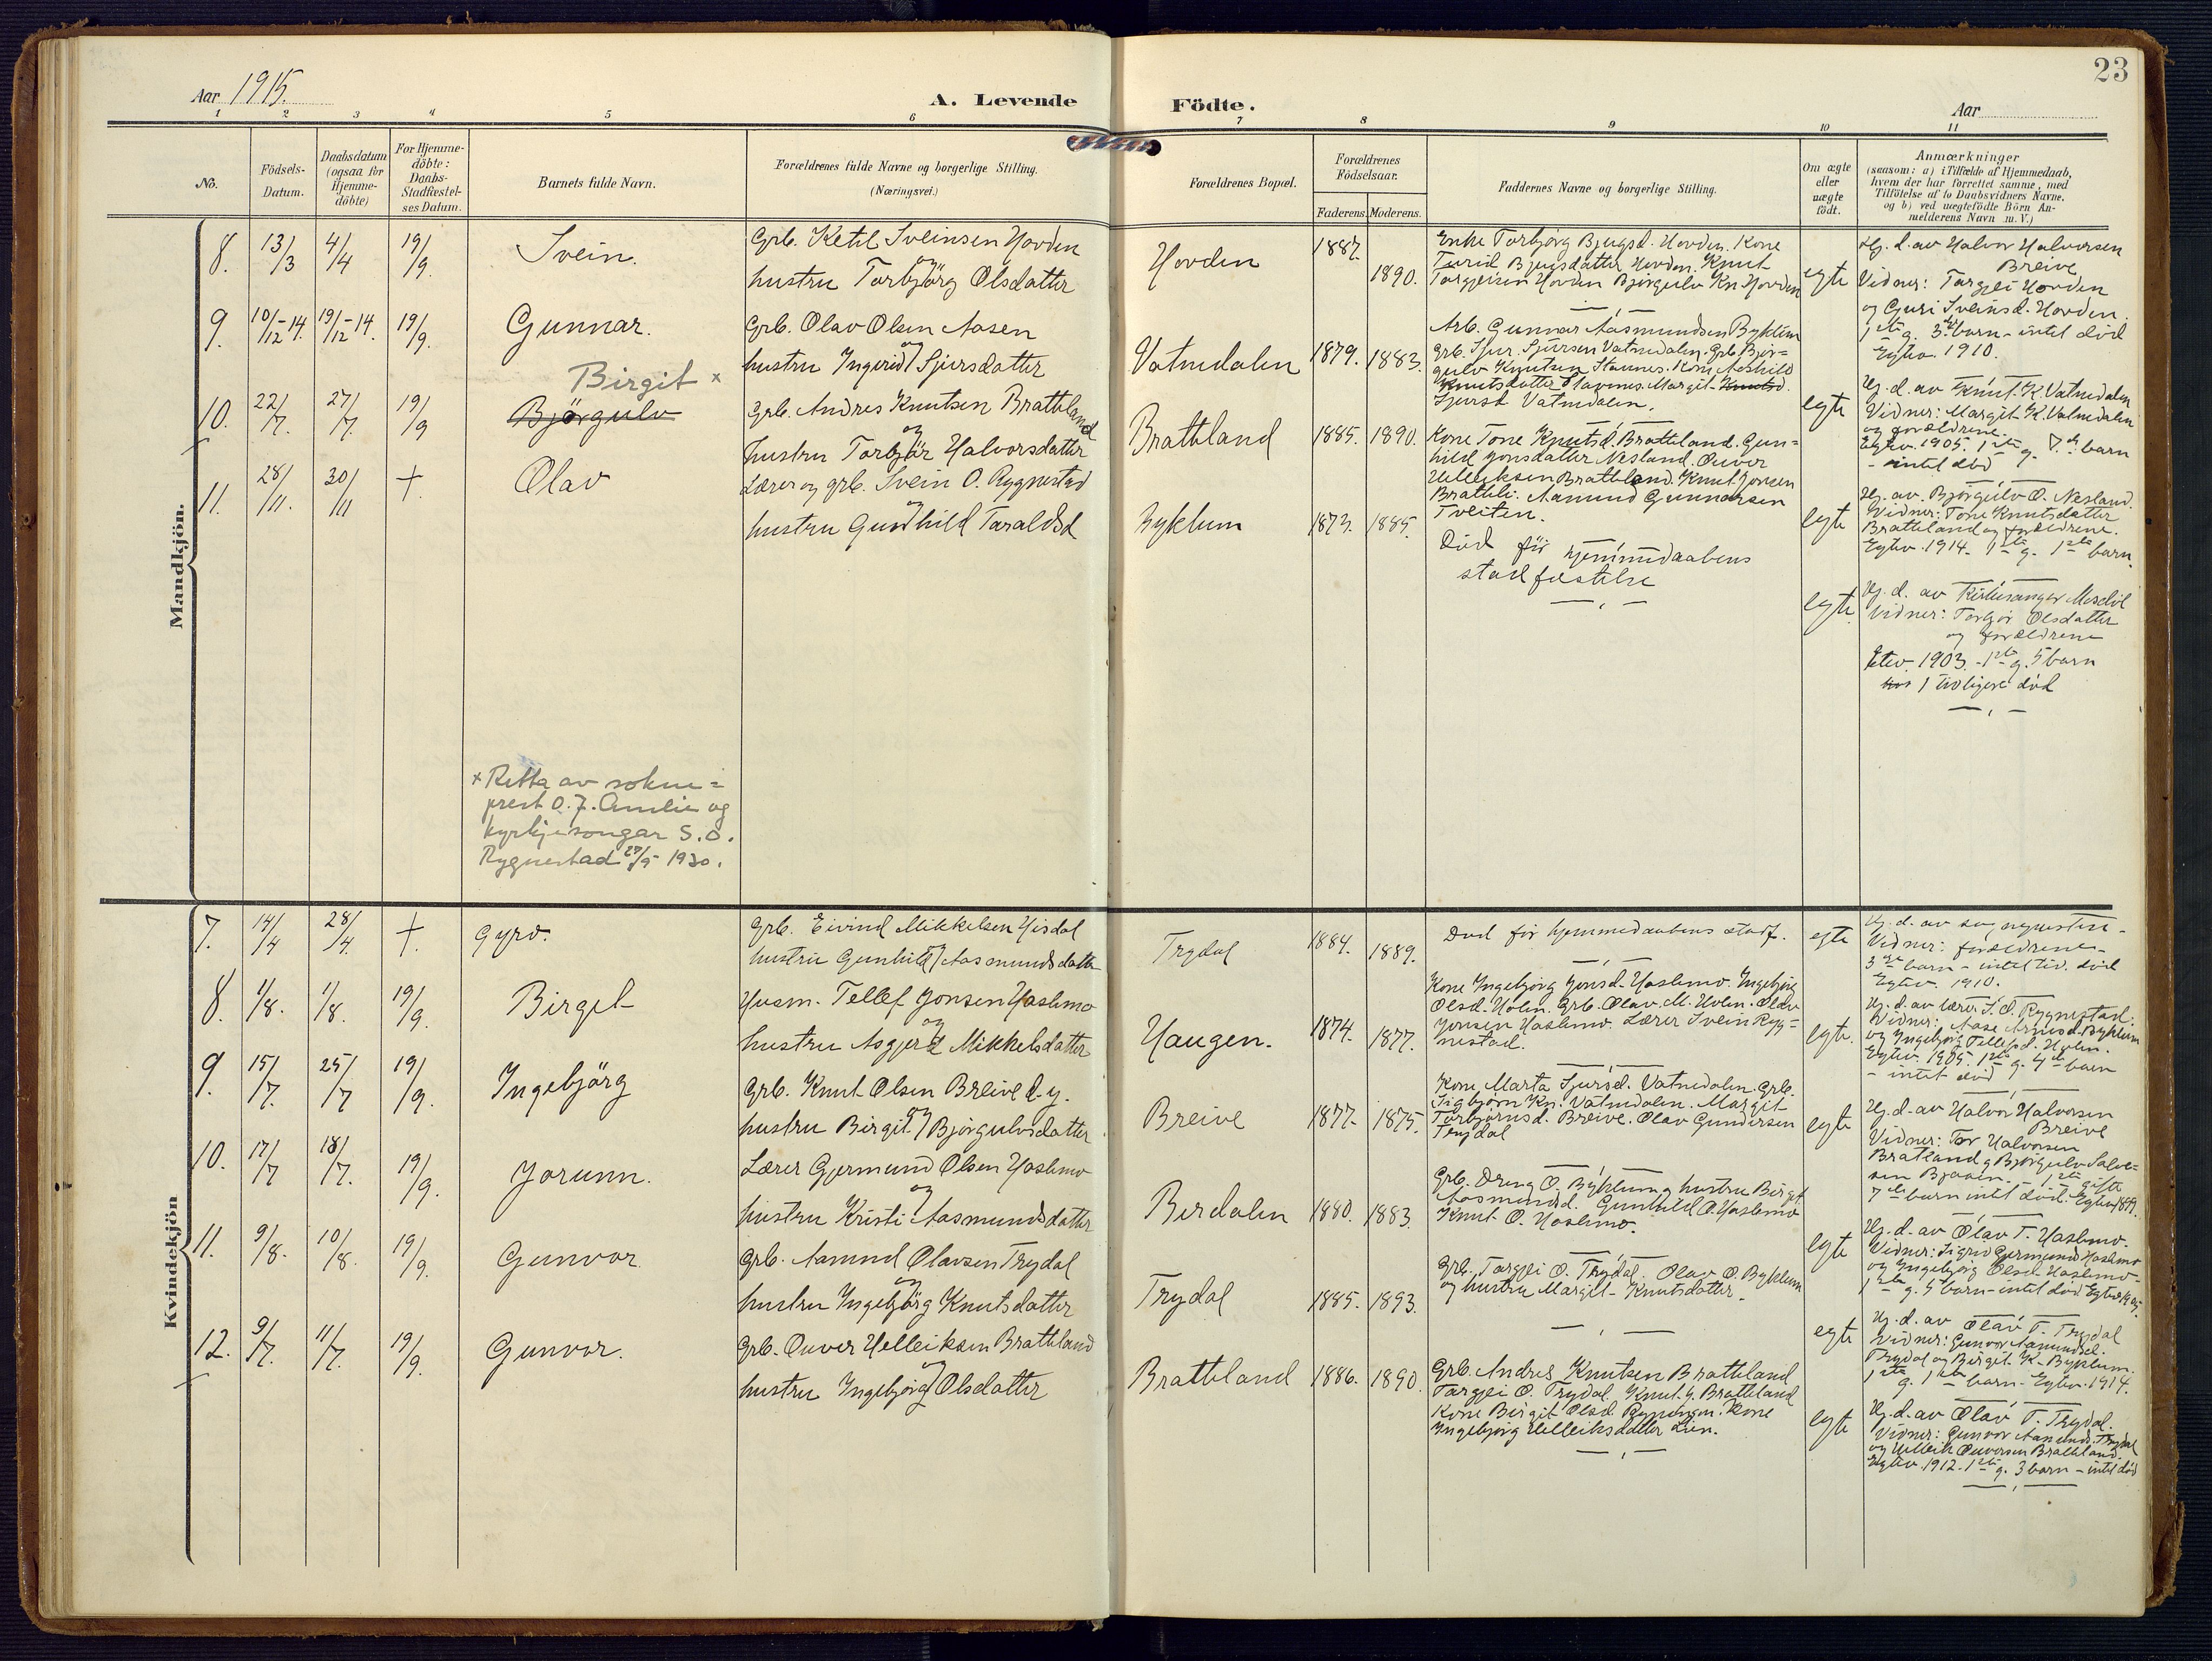 23
Aar 1915.
A. Levende Födte.
Aar
1 2 3 4 5 6 7 8 9 10 11
No.
Födsels-
Datum.
Daabsdatum
(ogsaa for
Hjemme-
döbte)
For Hjemme-
döbte:
Daabs-
Stadfæstel-
ses Datum.
Barnets fulde Navn.
Forældrenes fulde Navne og borgerlige Stilling.
(Næringsvei.)
Forældrenes Bopæl.
Forældrenes
Födselsaar.
Faderens. Moderens.
Faddernes Navne og borgerlige Stilling.
Om ægte
eller
uægte
födt.
Anmærkninger
(saasom: a) i Tilfælde af Hjemmedaab,
hvem der har forrettet samme, med
Tilföielse af to Daabsvidners Navne,
og b) ved uægtefödte Börn An-
melderens Navn m. V.)
Mandkjön.
8. 13/3 4/4 19/9.
Svein.
Grb. Ketil Sveinsen Hovden
og
hustru Torbjörg Olsdatter
Hovden
1887. 1890.
Enke Torbjörg Bjugsd. Hovden. Kone
Turid Bjugsdatter Hovden. Knut
Torgjeisen Hovden Björgulv Kn Hovden
egte
Hj. d. av Halvor Halvorsen
Breive
Vidner: Targjei Hovden
og Guri Sveinsd. Hovden.
1ste g. 3die barn - intet död
Egtev. 1910.
9. 10/12-14. 19/12-14. 19/9.
Gunnar.
Grb. Olav Olsen Aasen
og
hustru Ingerid Sjursdatter
Vatnedalen
1879. 1883.
Arb. Gunnar Aasmundsen Byklum
Grb. Sjur Sjursen Vatnedalen. Grb. Björ-
gulv Knutsen Stavnes. Kone Aashild
Knutsdatter Stavnes. Margit Knutsd.
Sjursd Vatnedalen.
egte
Hj. d. av Knut K. Vatnedalen
Vidner: Margit K. Vatnedalen
og forældrene.
Egtev. 1905. 1ste g. 7de barn
- intet död
Birgit x
10. 22/7. 27/7. 19/9
Björgulv
Grb. Andres Knutsen Bratteland
og
hustru Torbjör Halvorsdatter
Bratteland
1885. 1890.
Kone Tone Knutsd. Bratteland. Gun-
hild Jonsdatter Nesland. Ouver
Helleiksen Bratteland. Knut Jonsen
Bratteli. Aamund Gunnarsen
Tveiten.
egte
Hj. av. Björgulv O. Nesland.
Vidner: Tone Knutsdatter
Bratteland og forældrene.
Egtev. 1914. 1ste g. 1ste barn.
11. 28/11. 30/11 +.
Olav
Lærer og grb. Svein O. Rygnestad
og
hustru Gunhild Taraldsd
Byklum
1873. 1885.
Död för hjemmedaabens
stadfæstelse
egte.
Hj. d. av Kirkesanger Mosdöl
Vidner: Torbjör Olsdatter
og forældrene
Etev. 1903. - 1ste g. 5 barn
1 tidligere död
x Retta av sokne=
prest O. J. Amlie og
kyrkjesongar S. O.
Rygnestad 27/5 1930.
Kvindekjön
7. 14/4 28/4. +.
Gyro.
Grb. Eivind Mikkelsen Hisdal
og
hustru Gunhild Aasmundsdatter
Trydal
1884. 1889.
Död för hjemmedaabens stadf.
egte
Hj. d. av sognepresten -
Vidner: forældrene -
3die barn - intet tid. död
Egtev. 1910.
8. 1/8. 1/8. 19/9.
Birgit
Husm. Tellef Jonsen Haslemo
og
hustru Asgjerd Mikkelsdatter
Haugen.
1874. 1877.
Kone Ingebjörg Jonsd. Haslemo. Ingebjörg
Olsd. Holen. Grb. Olav M. Holen. Olav
Jonsen Haslemo. Lærer Svein Ryg=
nestad.
egte.
Hj. d. av lærer S. O. Rygnestad.
Vidner: Aase Arnesd. Byklum
og Ingebjörg Tellefsd. Holen.
Egtev. 1905. 1ste g. 4de barn
- intet död
9. 15/7. 25/7 19/9.
Ingebjörg
Grb. Knut Olsen Breive d. y.
og
hustru Birgit Björgulvsdatter
Breive
1877. 1875.
Kone Marta Sjursd. Vatnedalen. Grb.
Sigbjörn Kn. Vatnedalen. Margit
Torbjörnsd. Breive. Olav Gundersen
Trydal
egte
Hj. d. av Halvor Halvorsen
Breive
Vidner: Tor Halvorsen
Bratland og Björgulv Salve-
sen Bjaaen. - 1ste gifte
7de barn intet död. Egtev. 1899.
10. 17/7 18/7. 19/9.
Jorunn.
Lærer Gjermund Olsen Haslemo
og
hustru Kristi Aasmundsdatter
Berdalen
1880. 1883.
Grb. Dreng O. Byklum og hustru Birgit
Aasmundsd. Gunhild O. Haslemo
Knut O. Haslemo.
egte
Hj. d. av Olav T. Haslemo.
Vidner: Sigrid Gjermunds Haslemo
og Ingebjörg Olsd Haslemo -
1ste g. 5 barn - intet död Egtev 1905
11. 9/8. 10/8. 19/9.
Gunvor
Grb. Aamund Olavsen Trydal
og
hustru Ingebjörg Knutsdatter
Trydal
1885. 1893.
Grb. Targjei O. Trydal. Olav O. Byklum
og hustru Margit Knutsdatter.
egte
Hj. d. av Olav T. Trydal
Vidner: Gunvor Aamundsd.
Trydal og Birgit K. Byklum.
1ste g. 1ste barn. Egtev. 1914.
12. 9/7. 11/7. 19/9.
Gunvor.
Grb. Ouver Helleiksen Bratteland
og
hustru Ingebjörg Olsdatter
Bratteland
1886. 1890
Grb. Andres Knutsen Bratteland
Targjei O. Trydal. Knut G. Bratteland
Kone Birgit Olsd. Kone
Ingebjörg Helleiksdatter Lien.
egte
Hj. d. av Olav T. Trydal.
Vidner: Gunvor Aamunds. Trydal
og Helleik Ouversen Bratteland.
Egtev. 1912. 1ste g. 3 barn - intet död